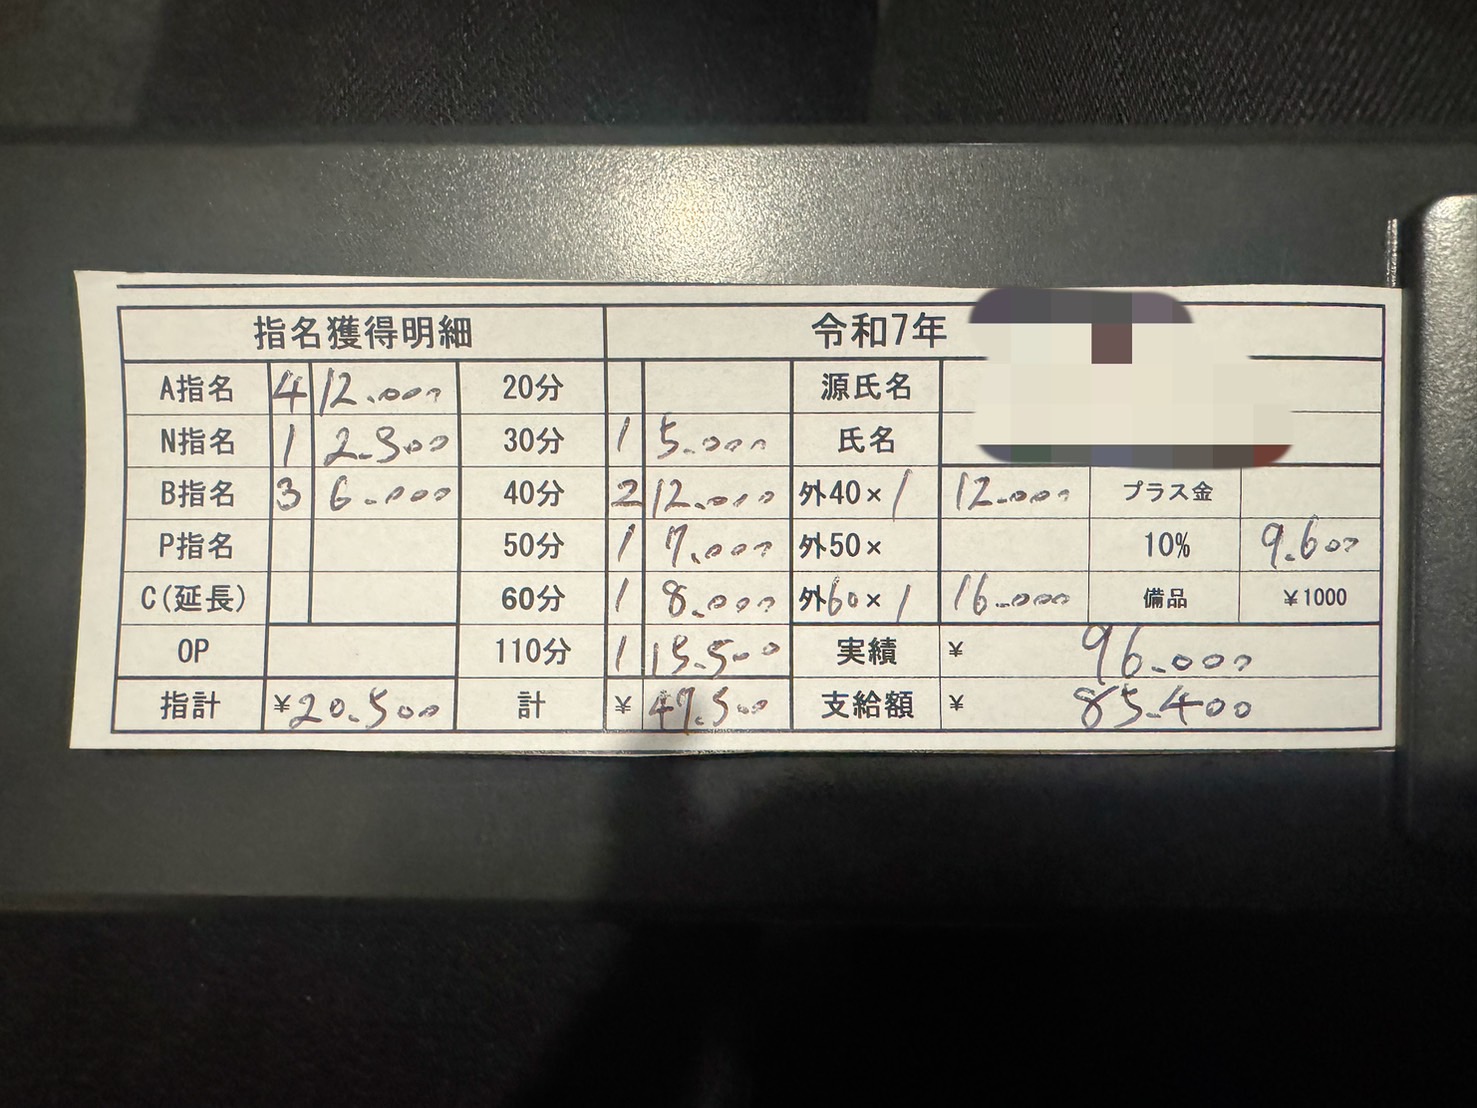 指名獲得明細 令和7年
A指名 4 12.000 20分 源氏名
N指名 1 2.500 30分 1 5.000 氏名
B指名 3 6.000 40分 2 12.000 外40× 1 12.000 プラス金
P指名 50分 1 7.000 外50× 10% 9.600
C(延長) 60分 1 8.000 外60× 1 16.000 備品 ¥1000
OP 110分 1 15.500 実績 ¥ 96.000
指計 ¥20.500 計 ¥ 47.500 支給額 ¥ 85.400